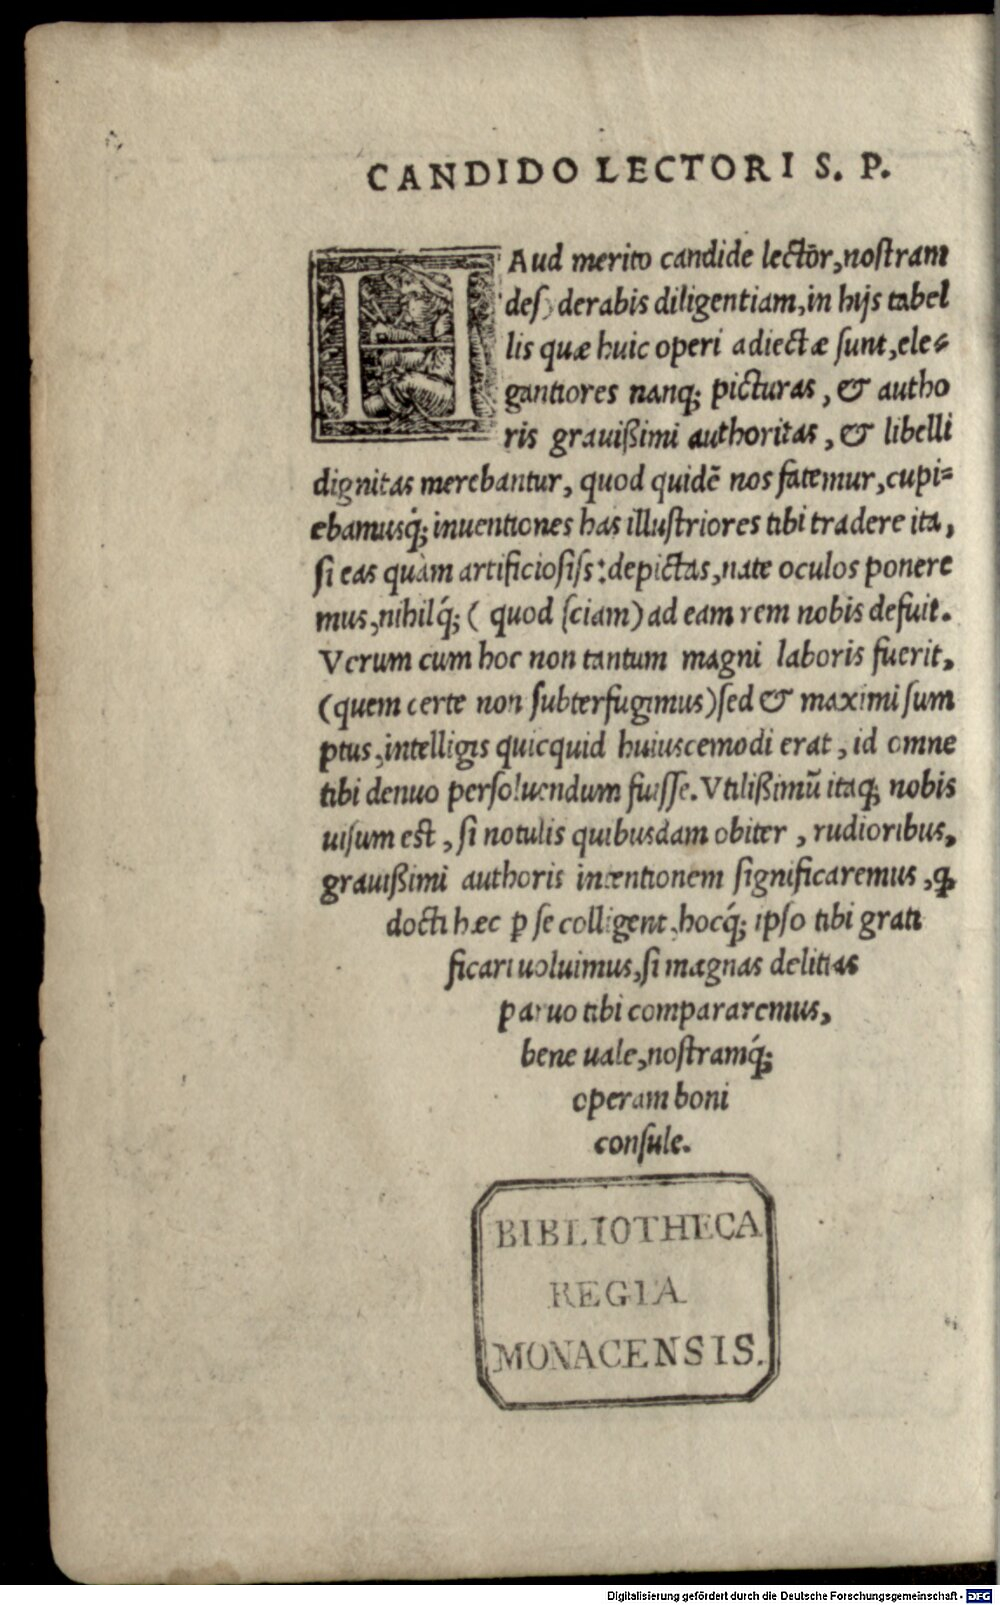 CANDIDO LECTORI S. P.
HAud merito candide lectōr, nostram
desyderabis diligentiam, in hijs tabel
lis quæ huic operi adiectæ sunt, ele-
gantiores nanq; picturas, & autho
ris grauißimi authoritas, & libelli
dignitas merebantur, quod quidē nos fatemur, cupi=
ebamusq́; inuentiones has illustriores tibi tradere ita,
si eas quàm artificiosiss: depictas, nate oculos ponere
mus, nihilq́; ( quod sciam) ad eam rem nobis defuit.
Verum cum hoc non tantum magni laboris fuerit,
(quem certe non subterfugimus) sed & maximi sum
ptus, intelligis quicquid huiuscemodi erat, id omne
tibi denuo persoluendum fuisse. Vtilißimū itaq; nobis
uisum est, si notulis quibusdam obiter, rudioribus,
grauißimi authoris intentionem significaremus, ꝙ
docti hæc ꝑ se colligent, hocq́; ipso tibi grati
ficari uoluimus, si magnas delitias
paruo tibi compararemus,
bene uale, nostramq́;
operam boni
consule.
BIBLIOTHECA
REGIA
MONACENSIS.
Digitalisierung gefördert durch die Deutsche Forschungsgemeinschaft - DFG